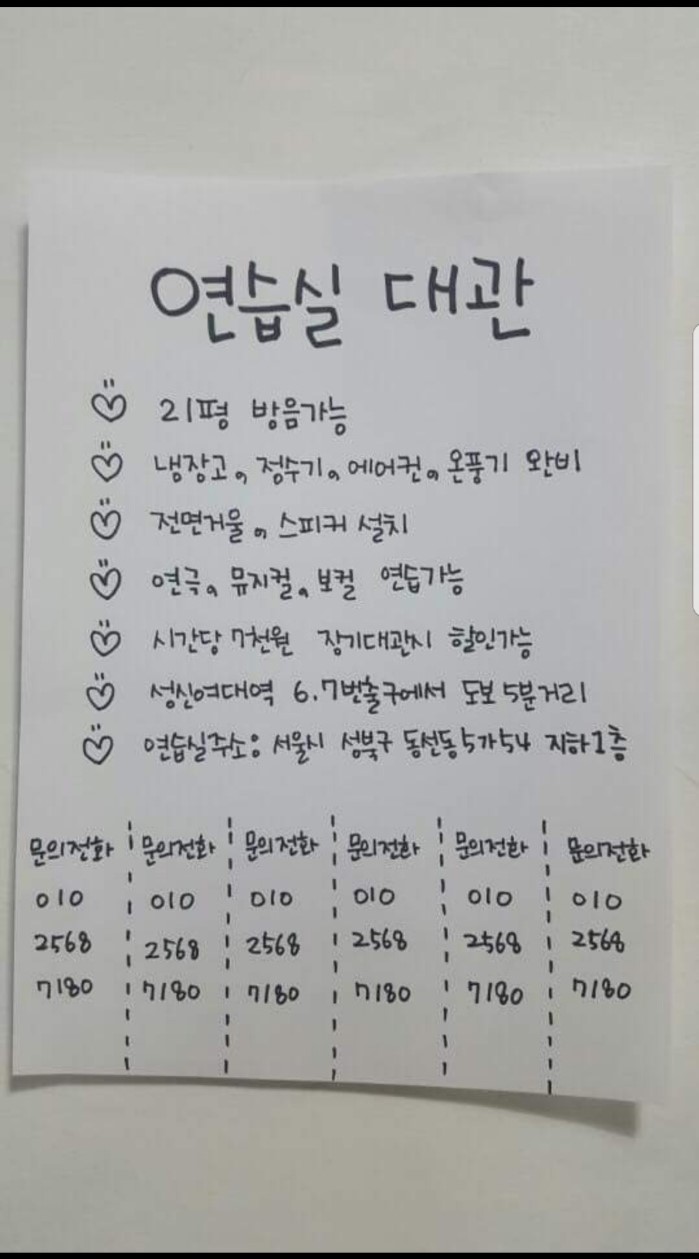 연습실 대관
21평 방음가능
냉장고, 정수기, 에어컨, 온풍기 완비
전면거울, 스피커 설치
연극, 뮤지컬, 보컬 연습가능
시간당 7천원 장기대관시 할인가능
성신여대역 6.7번출구에서 도보 5분거리
연습실주소: 서울시 성북구 동선동5가54 지하1층
문의전화 문의전화 문의전화 문의전화 문의전화 문의전화
010 010 010 010 010 010
2568 2568 2568 2568 2568 2568
7180 7180 7180 7180 7180 7180